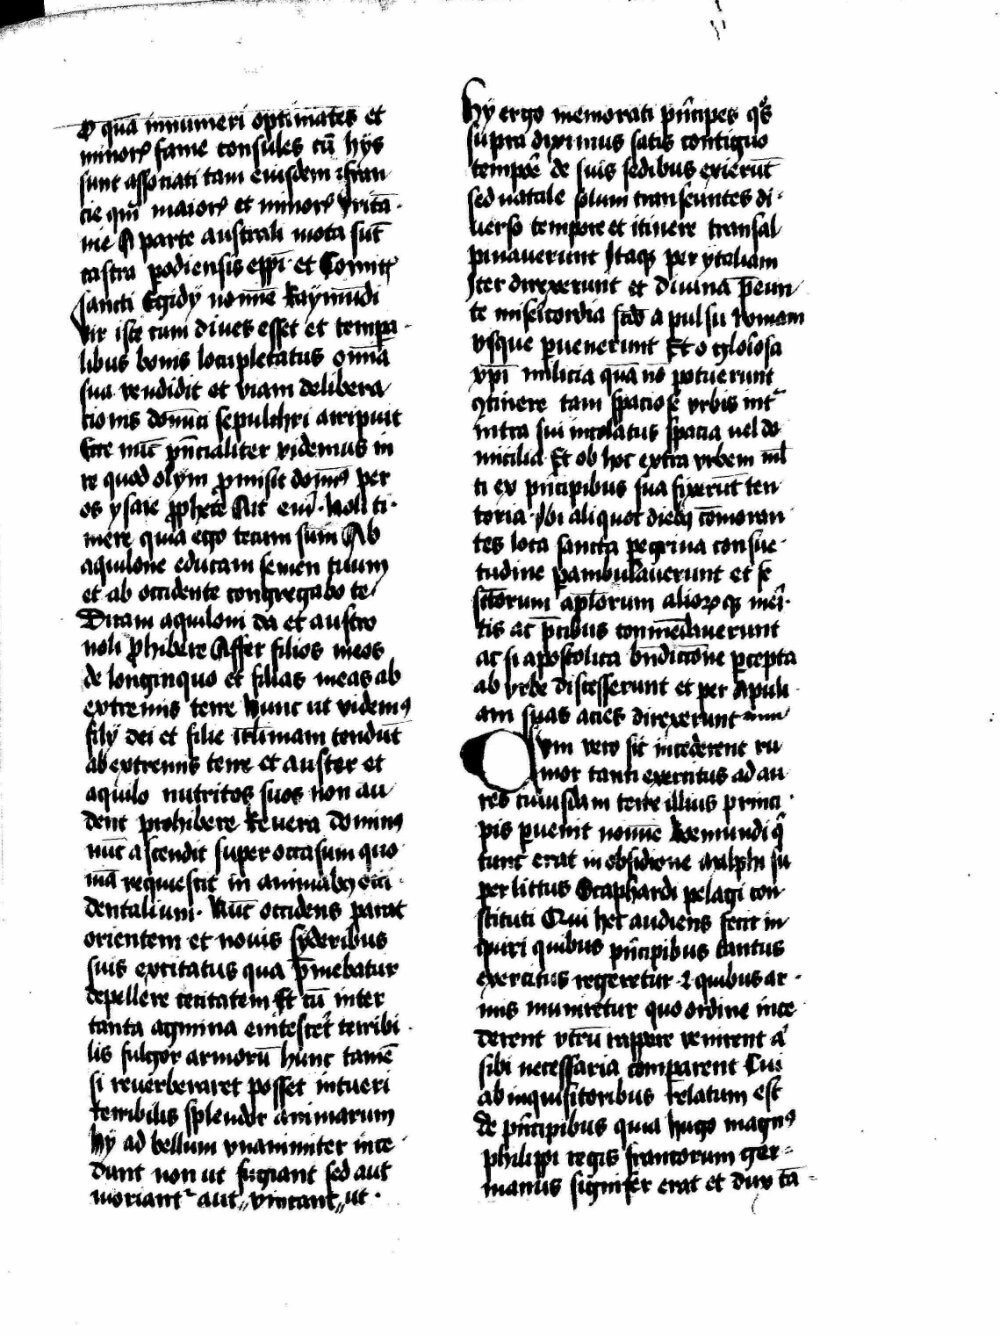 O quam innumeri optimates et
minoris fame consules cū hijs
sunt associati tam eiusdem ffran
cie qm̄ maioris et minoris brita
nie A parte australi mota sūt
castra podiensis epī et Comitis
sancti Egidij noīne Raymūdi
vir iste cum diues esset et tempa
libus bonis locupletatus omīa
sua vendidit et viam delibera
cionis domīci sepulchri arripuit
Ecce nūc pn̄cialiter videmus in
re quod olym promisit domīus per
os ysaie prophete Ait enī Noli ti
mere quia ego tecum sum Ab
aquilone educam semen tuum
et ab occidente congregabo te
Dicam aquiloni da et austro
noli prohibere Affer filios meos
de longinquo et filias meas ab
extremis terre Nunc ut videmus
filij dei et filie ihrlīmam tendūt
ab extremis terre et auster et
aquilo nutritos suos non au
dent prohibere Reuera dominus
nūc ascendit super occasum quo
niā requiescit in animabus occi
dentalium Nūc occidens parat
orientem et nouis syderibus
suis excitatus qua premebatur
depellere cecitatem Et cū inter
tanta agmina emicesceret terribi
lis fulgor armorū hunc tamē
si reuerberaret posset intueri
terribilis splendor animarum
hij ad bellum vnanimiter ince
dunt non ut fugiant sed aut
moriantur aut vincant ut
Hij ergo memorati prīcipes qos
supra diximus satis contiguo
tempōe de suis sedibus exierūt
sed natale solum transeuntes di
uerso tempore et itinere transal
pinauerunt Itaque per ytaliam
Iter direxerunt et diuina preeun
te misericordia a pulsu romam
vsque peruenerunt Et o gloriosa
xpī milicia quā nō potuerunt
9tinere tam spaciose vrbis
intra sui incolatus spacia uel do
micilia Et ob hoc extra vrbem ml̄
ti ex prīcipibus sua fixerūt ten
toria Ibi aliquot diebus cōmoran
tes loca sancta peregrina consue
tudine perambulauerunt et se
sc̄torum apl̄orum aliorumque meri
tis ac precibus conmēdauerunt
ac si apostolica bn̄dictiōne percepta
ab vrbe discesserunt et per Apuli
am suas acies direxerunt
Cum vero sic incederent ru
mor tanti exercitus ad au
res cuiusdam terre illius princi
pis peruenit noīne Boemundi q̄
tunc erat in obsidione malphi su
per littus Scaphardi pelagi con
stituti Qui hec audiens fecit in
quiri quibus prīcipibus tantus
exercitus regeretur et quibus ar
mis muniretur quo ordine ince
derent vtrū rappere venirent an
sibi necessaria comparent Cui
ab inquisitoribus relatum est
de prīcipibus quia hugo magnus
philippi regis francorum ger
manus signifer erat et dux tā